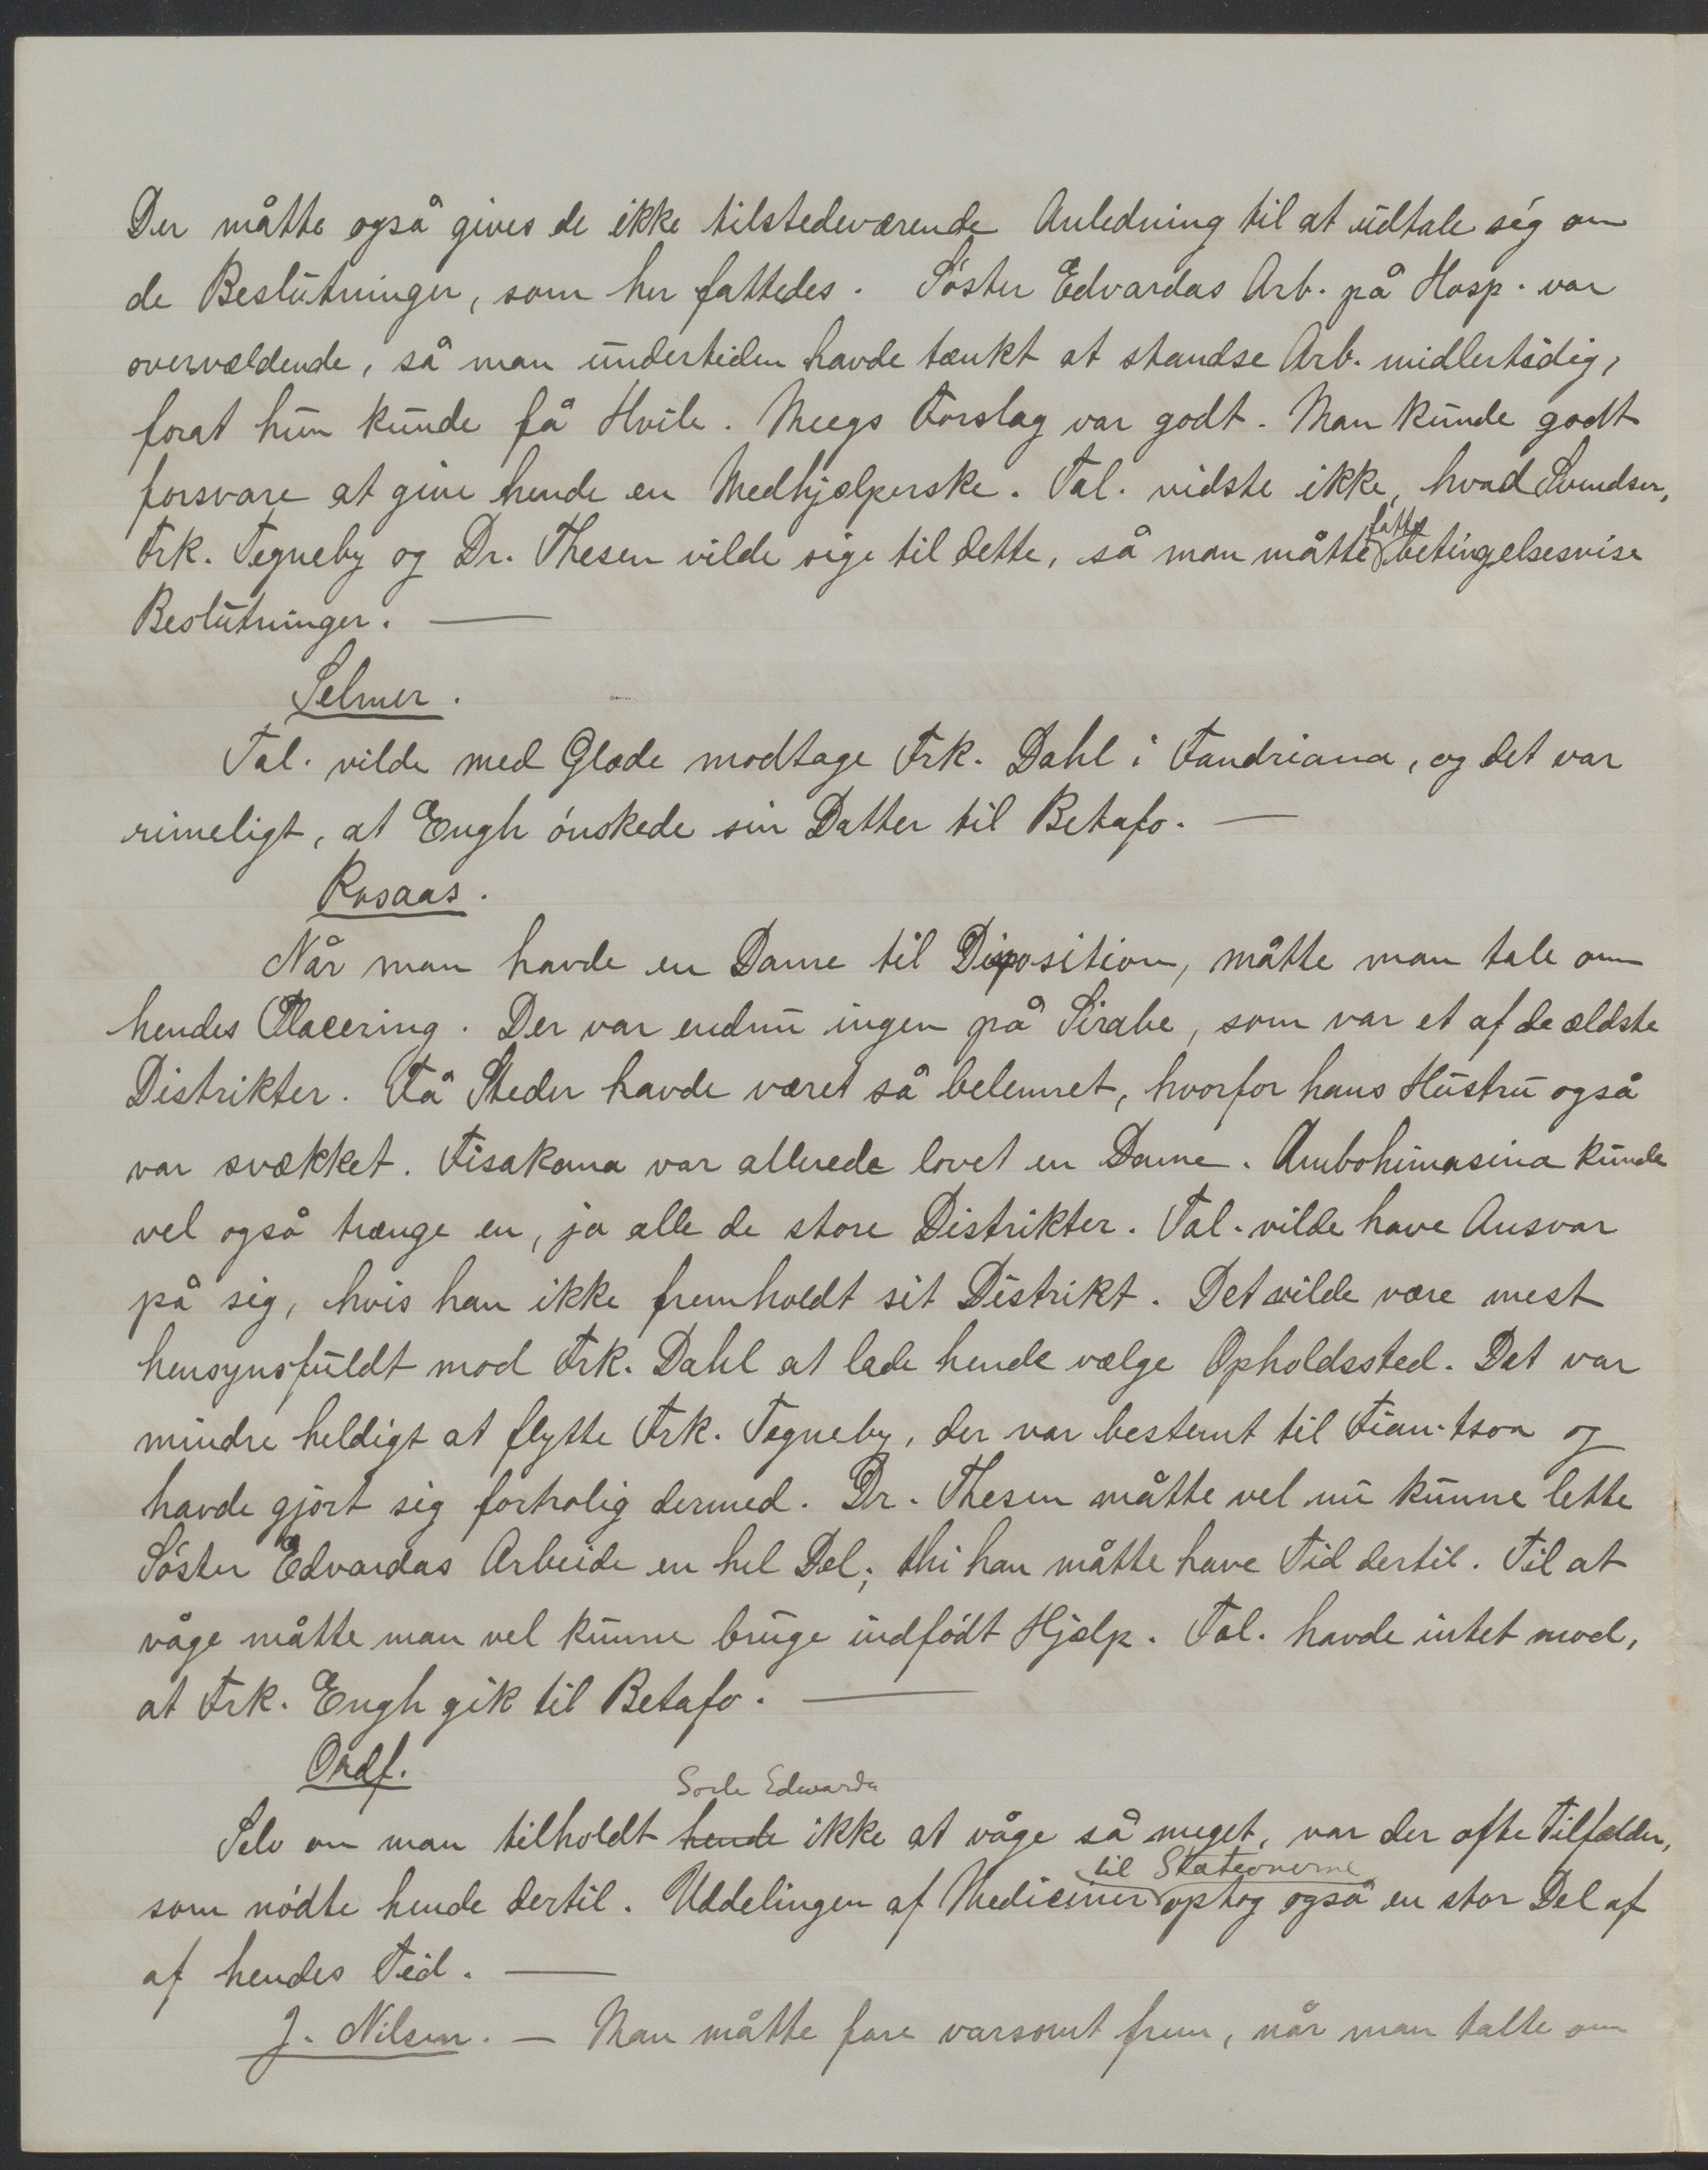 Der måtte også gives de ikke tilstedeværende Anledning til at udtale sig om
de Beslutninger, som her fattedes. Søster Edvardas Arb. på Hosp. var
overvældende, så man undertiden havde tænkt at standse Arb. midlertidig,
forat hun kunde få Hvile. Meegs Forslag var godt. Man kunde godt
forsvare at give hende en Medhjælperske. Tal. vidste ikke, hvad Svendsen,
Frk. Tegneby og Dr. Thesen vilde sige til dette, så man måtte fatte betingelsesvise
Beslutninger. —
Selmer.
Tal. vilde med Glæde modtage Frk. Dahl i Fandriana, og det var
rimeligt, at Engh ønskede sin Datter til Betafo. —
Rosaas.
Når man havde en Dame til Disposition, måtte man tale om
hendes Placering. Der var endnu ingen på Sirabe, som var et af de ældste
Distrikter. Få Steder havde været så belemret, hvorfor hans Hustru også
var svækket. Fisakana var allerede lovet en Dame. Ambohimasina kunde
vel også trænge en, ja alle de store Distrikter. Tal. vilde have Ansvar
på sig, hvis han ikke fremholdt sit Distrikt. Det vilde være mest
hensynsfuldt mod Frk. Dahl at lade hende vælge Opholdssted. Det var
mindre heldigt at flytte Frk. Tegneby, der var bestemt til Fian-tsoa og
havde gjort sig fortrolig dermed. Dr. Thesen måtte vel nu kunne lette
Søster Edvardas Arbeide en hel Del; thi han måtte have Tid dertil. Til at
våge måtte man vel kunne bruge indfødt Hjælp. Tal. havde intet mod,
at Frk. Engh gik til Betafo. —
Ordf.
Selv om man tilholdt hende Søster Edwarda ikke at våge så meget, var der ofte Tilfælder,
som nødte hende dertil. Uddelingen af Mediciner til Stationerne optog også en stor Del af
af hendes Tid. —
J. Nilsen. — Man måtte fare varsomt frem, når man talte om